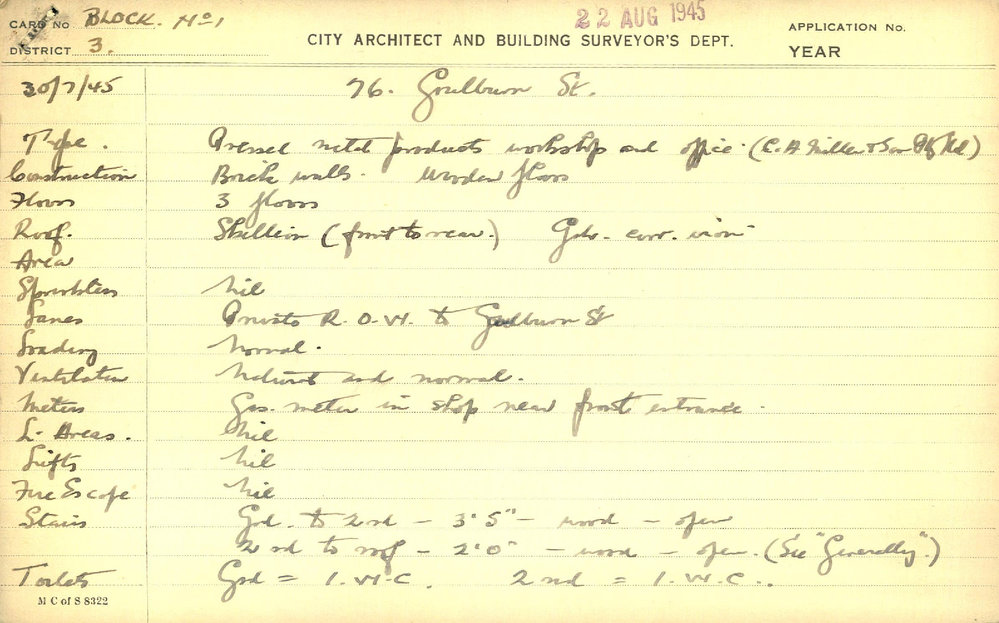 CARD No. BLOCK. No 1
22 AUG 1945
APPLICATION No.
DISTRICT 3.
CITY ARCHITECT AND BUILDING SURVEYOR'S DEPT.
YEAR
30/7/45 76. Goulburn St.
Type. Pressed metal products workshop and office. (C. A. Miller & Son Pty Ltd.)
Construction Brick walls. Wooden floors
Floors 3 floors
Roof. Skillion (front to rear.) Galv. corr. iron
Area
Sprinklers Nil
Lanes Private R.O.W. to Goulburn St
Loading Normal.
Ventilation Natural and normal.
Meters Gas meter in shop near front entrance.
L. Areas. Nil
Lifts Nil
Fire Escape Nil
Stairs Grd. to 2nd - 3'5" - wood - open
2nd to roof - 2'0" - wood - open. (See "Generally".)
Toilets Grd = 1. W.C. 2nd = 1. W.C..
M C of S 8322